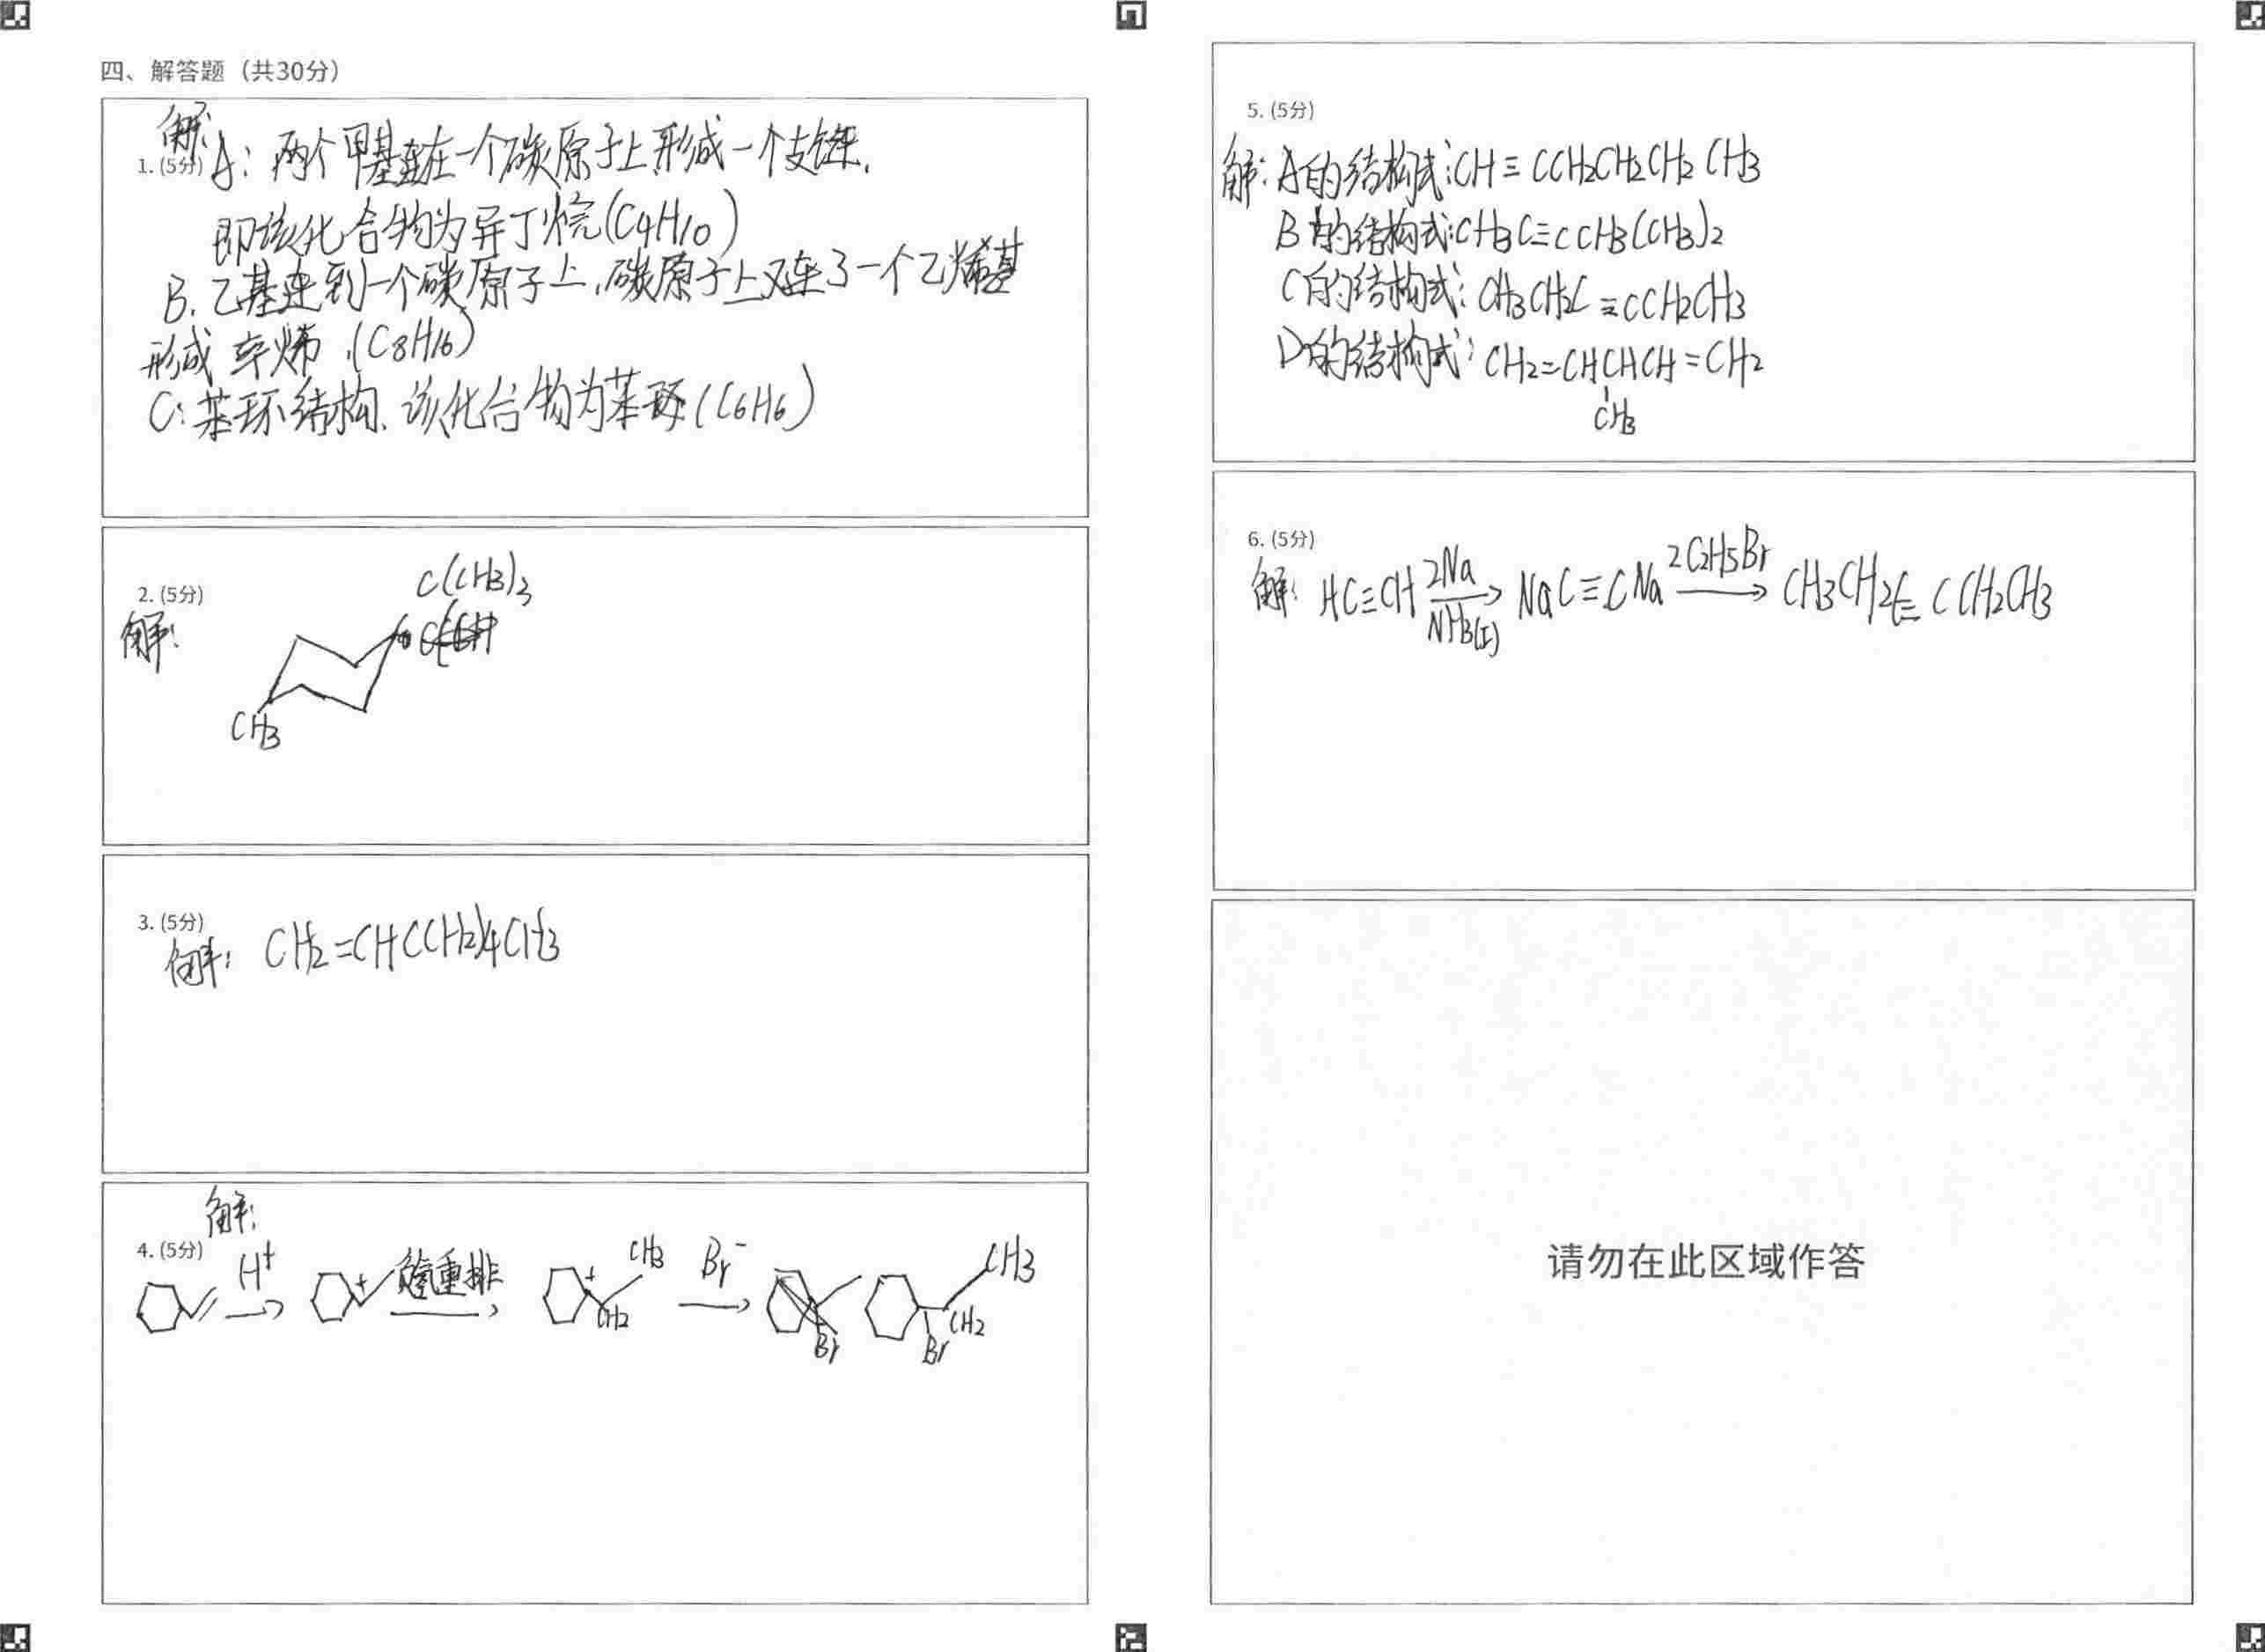 四、解答题（共30分）
解:
1. (5分) A: 两个甲基连在一个碳原子上,形成一个支链.
即该化合物为异丁烷(C4H10)
B. 乙基连到一个碳原子上,碳原子上又连了一个乙烯基
形成 辛烯.(C8H16)
C: 苯环结构. 该化合物为苯环(C6H6)
2. (5分)
解:
C(CH3)3
CH3
3. (5分)
解: CH2=CH(CH2)4CH3
解:
4. (5分)
H+ → + 重排 → + CH3 CH2 Br- → Br Br CH2 CH3
5. (5分)
解: A的结构式:CH≡CCH2CH2CH2CH3
B的结构式:CH3C≡CCH3(CH3)2
C的结构式: CH3CH2C≡CCH2CH3
D的结构式: CH2=CHCHCH=CH2
CH3
6. (5分)
解: HC≡CH 2Na → NH3(I) NaC≡CNa 2C2H5Br → CH3CH2C≡CCH2CH3
请勿在此区域作答